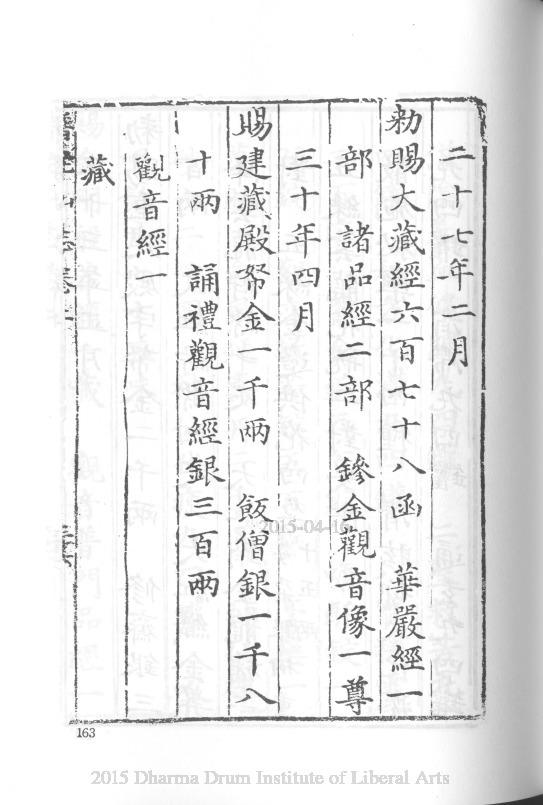 二十七年二月
勑賜大藏經六百七十八函　華嚴經一
部　諸品經二部　鏒金觀音像一尊
三十年四月
賜建藏殿帑金一千兩　飯僧銀一千八
十兩　誦禮觀音經銀三百兩
觀音經一
藏
163
2015-04-16
2015 Dharma Drum Institute of Liberal Arts